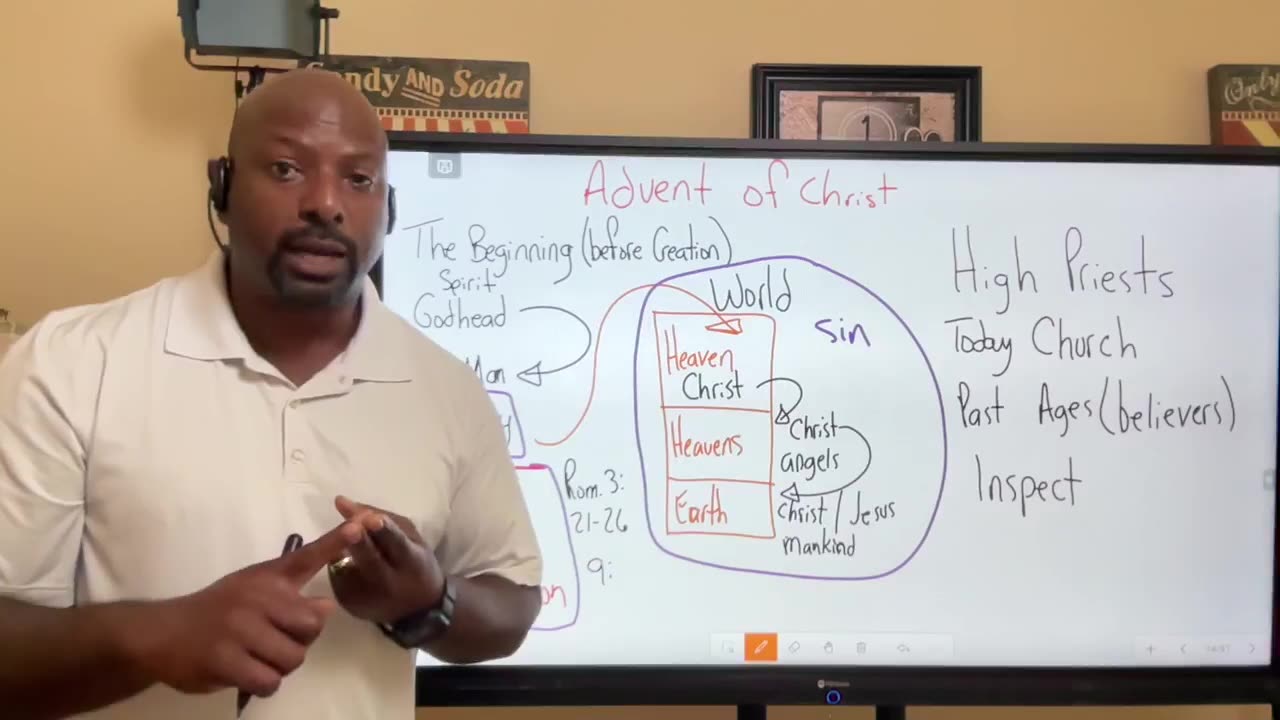 Candy AND Soda
1
Only
Advent of Christ
The Beginning (before Creation)
Spirit
Godhead
Man
Rom. 3:
21-26
9:
World
Sin
Heaven
Christ
Heavens
Earth
Christ
angels
Christ / Jesus
mankind
High Priests
Today Church
Past Ages (believers)
Inspect